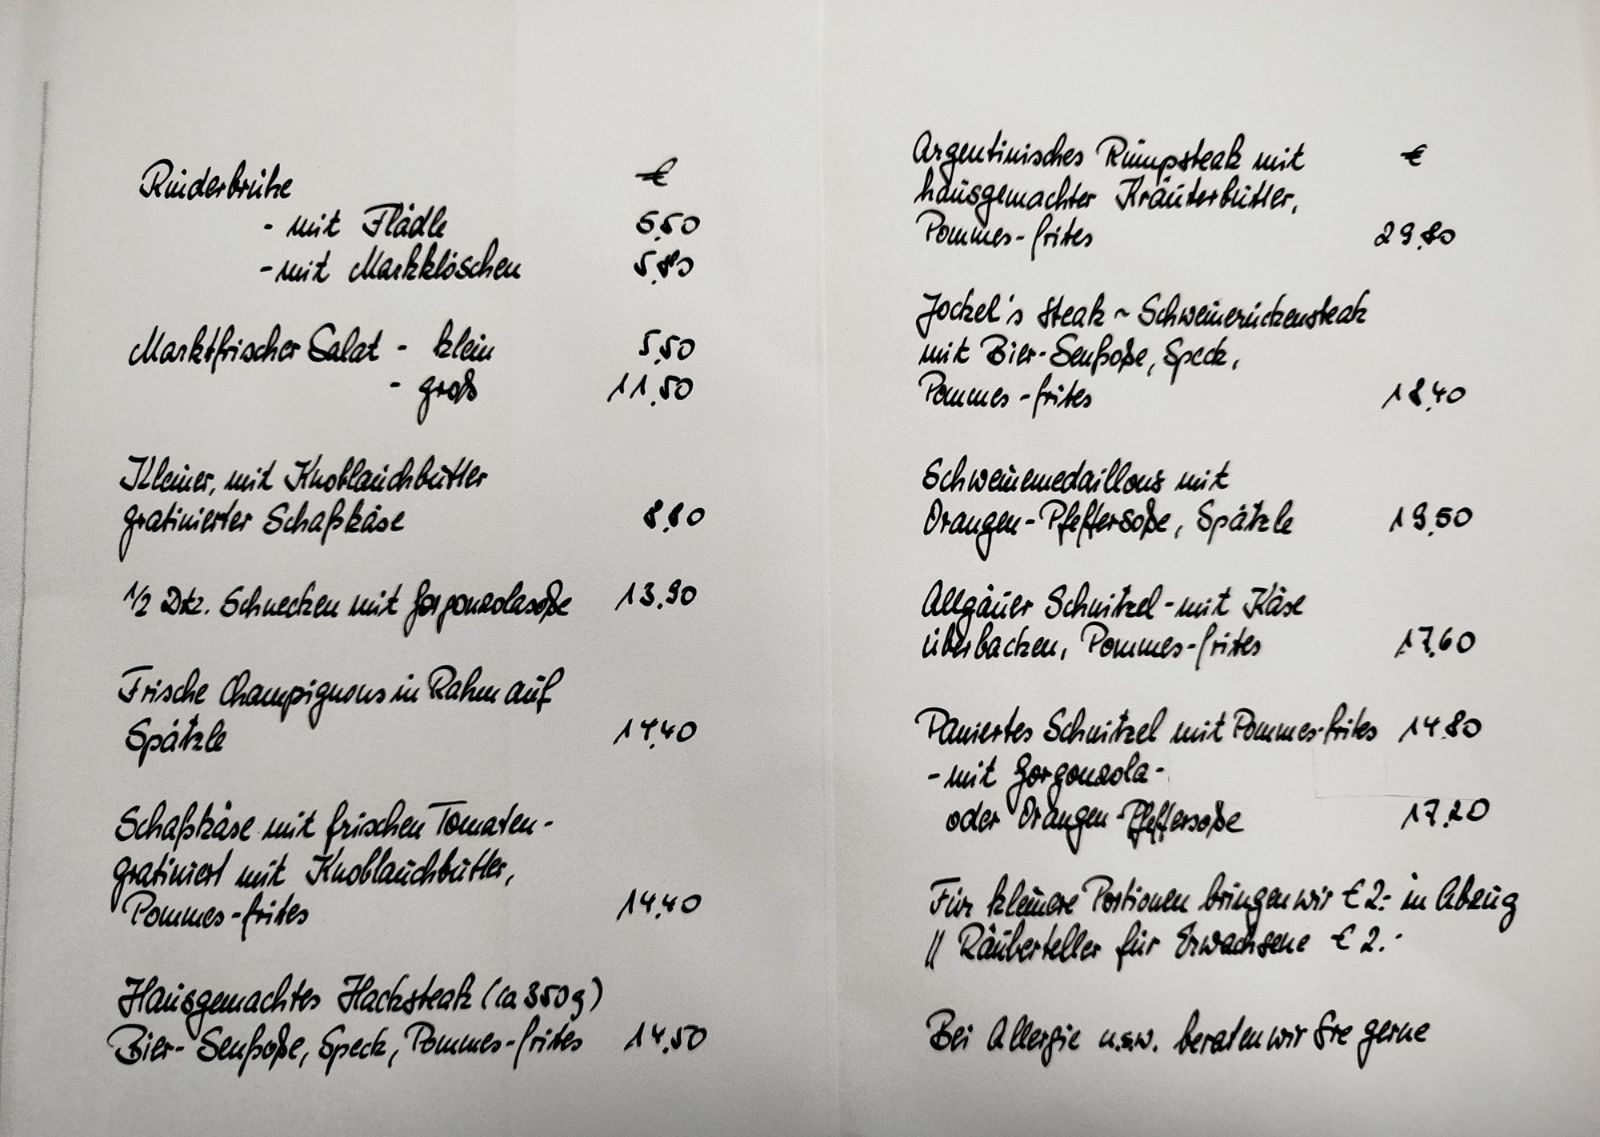 Rinderbrühe €
- mit Flädle 5,50
- mit Markklöschen 5,80
Marktfrischer Salat - klein 5,50
- groß 11,50
Kleiner, mit Knoblauchbutter
gratinierter Schafskäse 8,80
1/2 Dtz. Schnecken mit Gorgonzolasoße 13,90
Frische Champignons in Rahm auf
Spätzle 14,40
Schafskäse mit frischen Tomaten-
gratiniert mit Knoblauchbutter,
Pommes-frites 14,40
Hausgemachtes Hacksteak (ca 350g)
Bier-Senfsoße, Speck, Pommes-frites 14,50
Argentinisches Rumpsteak mit €
hausgemachter Kräuterbutter,
Pommes-frites 29,80
Jockel's Steak ~ Schweinerückensteak
mit Bier-Senfsoße, Speck,
Pommes-frites 18,40
Schweinemedaillons mit
Orangen-Pfeffersoße, Spätzle 19,50
Allgäuer Schnitzel - mit Käse
überbacken, Pommes-frites 17,60
Paniertes Schnitzel mit Pommes-frites 14,80
- mit Gorgonzola-
oder Orangen-Pfeffersoße 17,20
Für kleinere Portionen bringen wir € 2.- in Abzug
" Räuberteller für Erwachsene € 2.-
Bei Allergie u.s.w. beraten wir Sie gerne